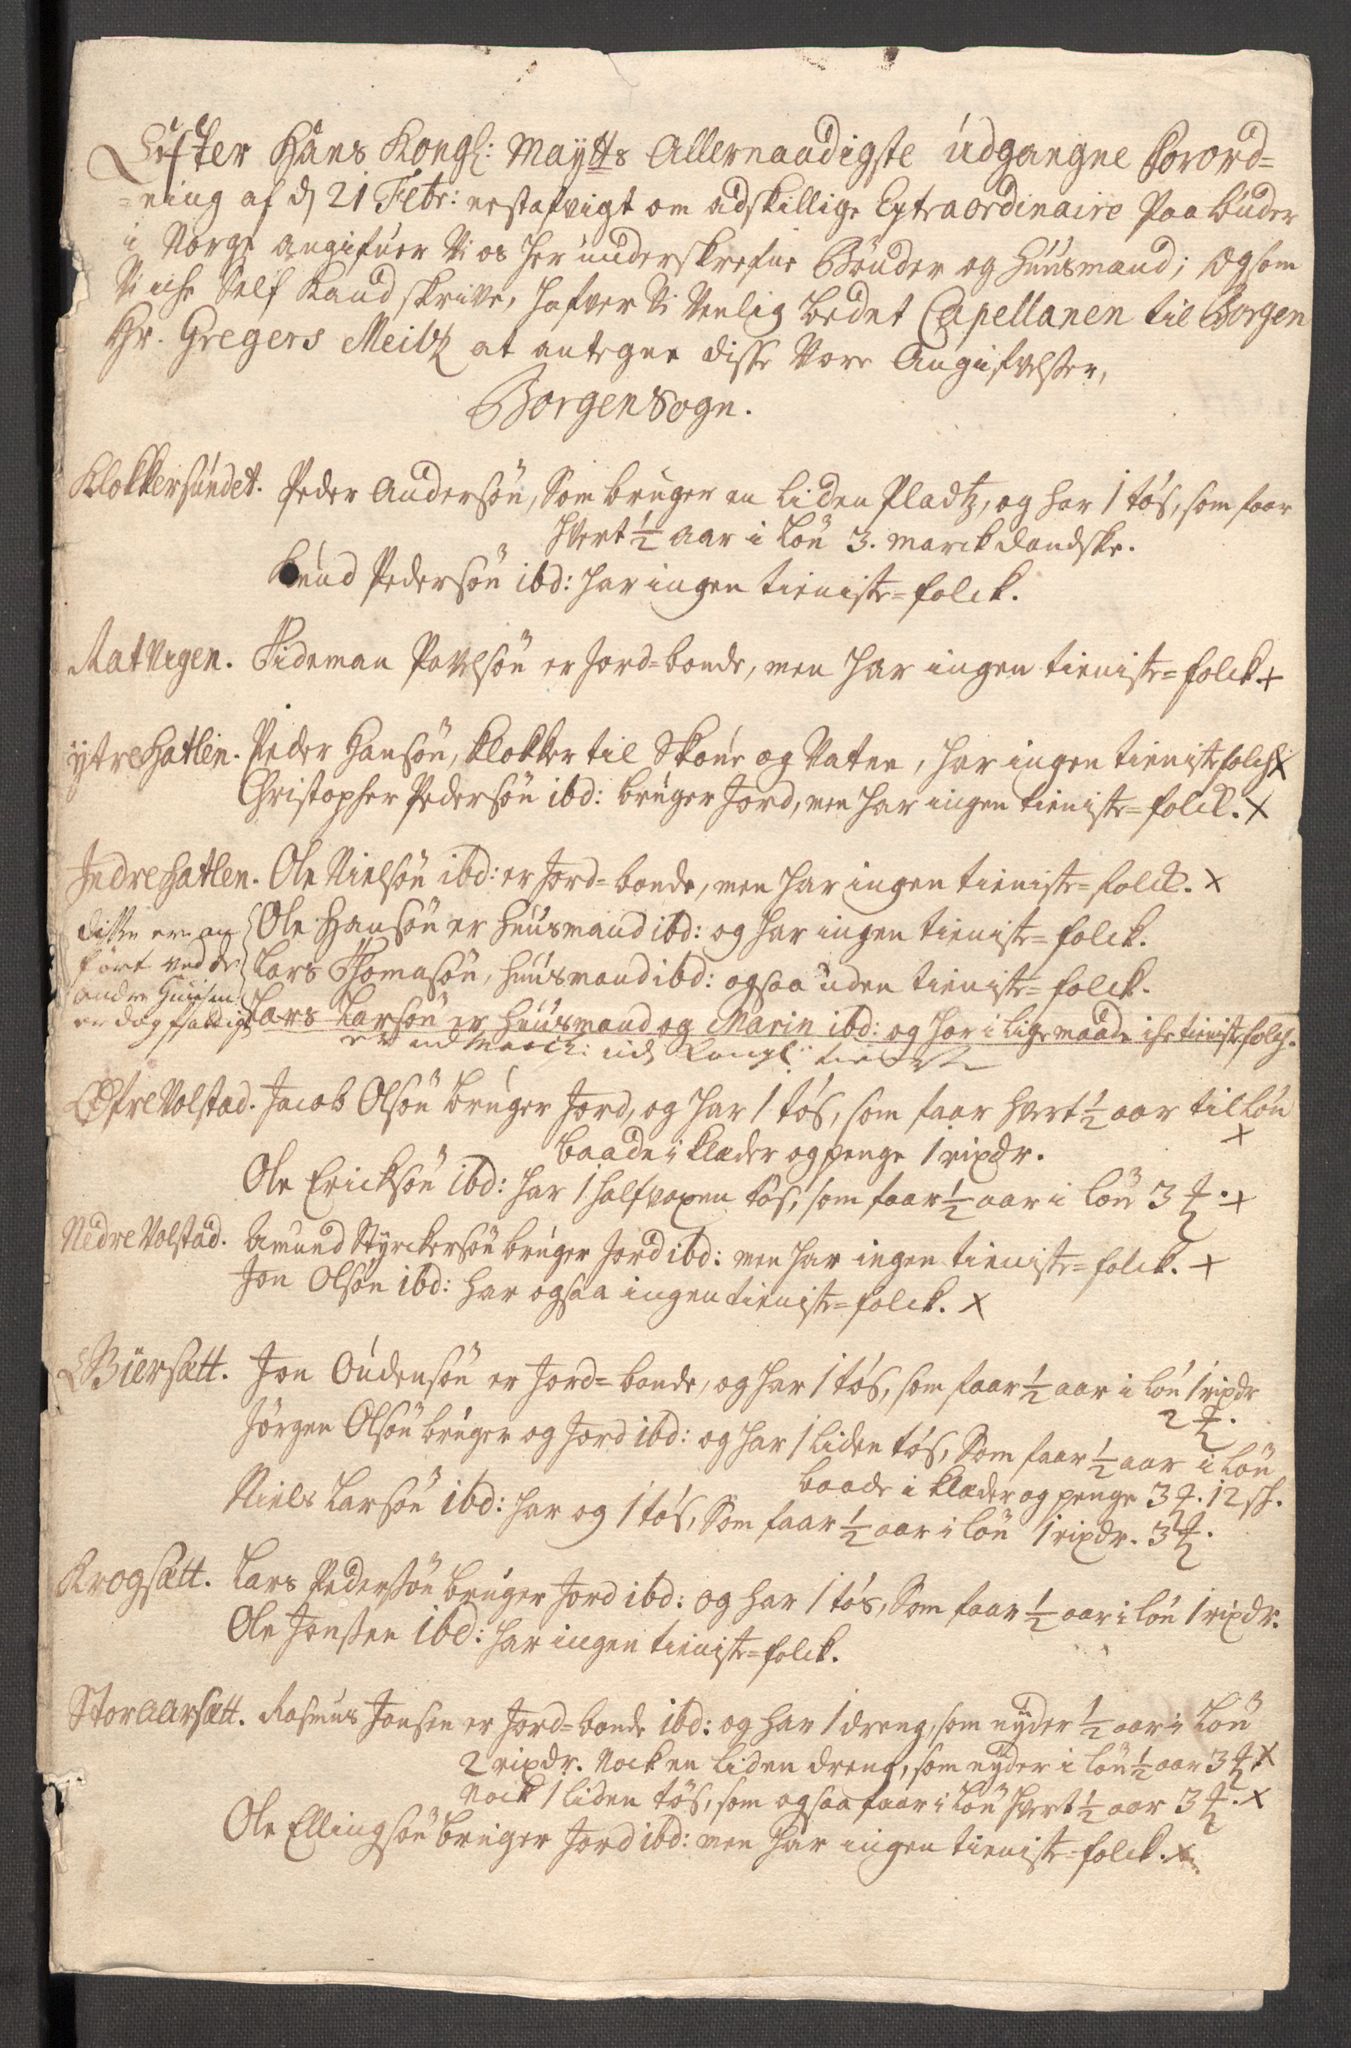 Eefter Hans Kongl: Maÿtts Allernaadigste udgangne Forord=
=ning af d 21 Febr: nestafvigt om adskillige Extraordinaire Paabuder
i Norge angifuer Vi os her underskrefne Bönder og Huusmænd; Og som
Vi iche Self kand skrive, hafver Vi Venlig bedet Capellanen til Borgen
Hr. Gregers Meitz at antegne disse Vore Angifvelser,
Borgen Sogn.
Klokkersundet. Peder Andersön, Som bruger en liden Pladtz, og har 1 tös, som faar
hvert ½ aar i lön 3. marck dandske.
Knud Pedersön ibd: har ingen tieniste=folck.
Matvigen. Tideman Povelsön er Jord=bonde, men har ingen tieniste=folck. +
ÿtre Hatlen. Peder Hansön, klokker til Skoue og Vatne, har ingen tienistefolch X
Christopher Pedersön ibd: bruger Jord, men har ingen tieniste=folck. X
Indre Hatlen. Ole Nielsön ibd: er Jord=bonde, men har ingen tieniste=folck. X
disse ere an Ole Hansön er huusmand ibd: og har ingen tieniste=folck.
fört ved de Lars Thomasön, huusmand ibd: ogsaa uden tieniste=folck.
andre Huusm: Lars Larsön er huusmand og Marin ibd: og har i lige maade iche tienistefolch.
er dog fattige er ud
Öfre Volstad. Jacob Olsön bruger Jord, og har 1 tös, som faar hvert ½ aar til lön
baade i klæder og penge 1 rixdr. +
Ole Ericksön ibd: har 1 halfvoxen tös, som faar ½ aar i lön 3 ℔. +
Nedre Volstad. Amund Styrckersön bruger Jord ibd: men har ingen tieniste=folck. +
Jon Olsön ibd: har ogsaa ingen tieniste=folck. X
Biersætt. Jon Oudensön er Jord=bonde, og har 1 tös, som faar ½ aar i lön 1 rixdr
2 ℔.
Jörgen Olsön bruger og Jord ibd: og har 1 liden tös, Som faar ½ aar i lön
baade i klæder og penge 3 ℔. 12 sk.
Niels Larsön ibd: har og 1 tös, Som faar ½ aar i lön 1 rixdr. 3 ℔.
Krogsætt. Lars Pedersön bruger Jord ibd: og har 1 tös, Som faar ½ aar i lön 1 rixdr.
Ole Jonsen ibd: har ingen tieniste=folck.
Stor Aarsætt. Rasmus Jonsen er Jord=bonde ibd: og har 1 dreng, som nÿder ½ aar i lön
2 rixdr. Nock en liden dreng, som nÿder i lön ½ aar 3 ℔. X
Nock 1 liden tös, som ogsaa faar i lön hvert ½ aar 3 ℔. X
Ole Ellingsön bruger Jord ibd: men har ingen tieniste=folck. X